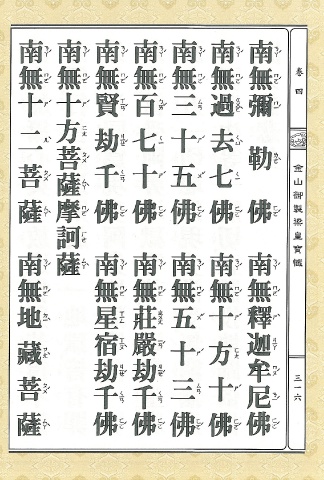 卷四
金山御製梁皇寶懺
三一六
南無彌勒佛
南無釋迦牟尼佛
南無過去七佛
南無十方十佛
南無三十五佛
南無五十三佛
南無百七十佛
南無莊嚴劫千佛
南無賢劫千佛
南無星宿劫千佛
南無十方菩薩摩訶薩
南無十二菩薩
南無地藏菩薩